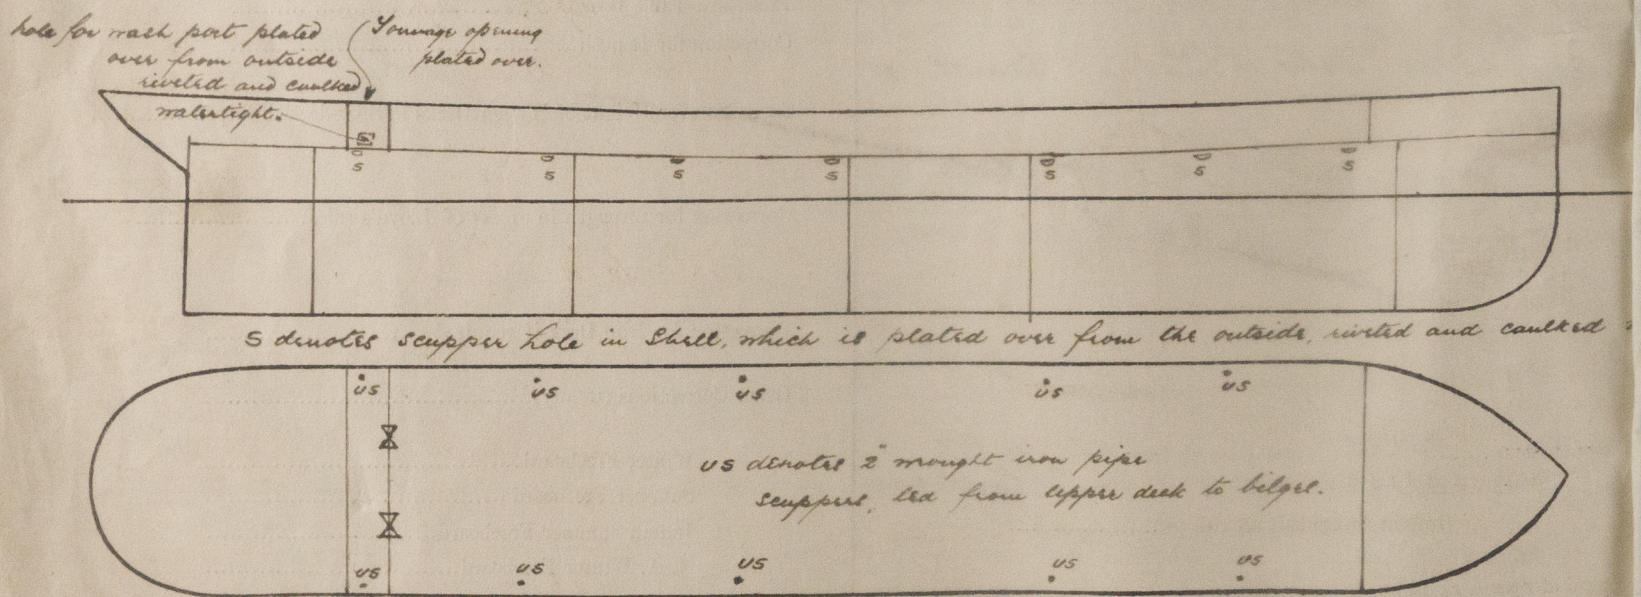 hole for wash port plated
over from outside
riveted and caulked
watertight.
Tonnage opening
plated over.
S S S S S S S
S denotes scupper hole in Shell, which is plated over from the outside, riveted and caulked
US US US US US
US denotes 2" wrought iron pipe
scuppers, led from upper deck to bilges.
US US US US US